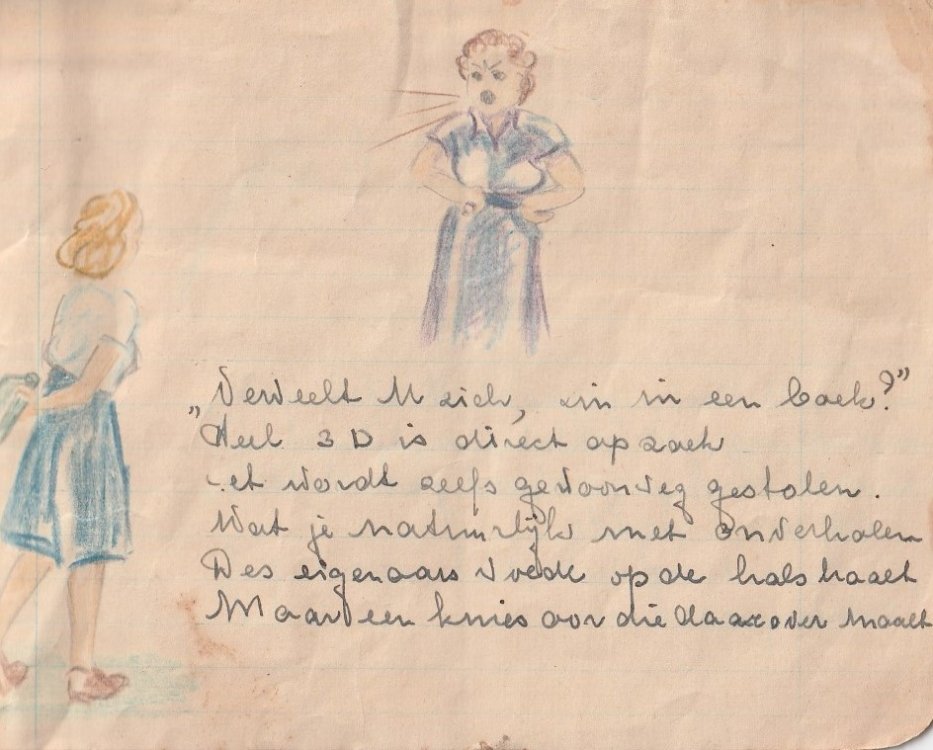 „Verveelt U zich, zin in een boek?”
Heel 3 D is direct op zoek
.et wordt zelfs gewoonweg gestolen.
Wat je natuurlijk met onverholen
Des eigenaars woede op de hals haalt
Maar een kniesoor die daarover maalt